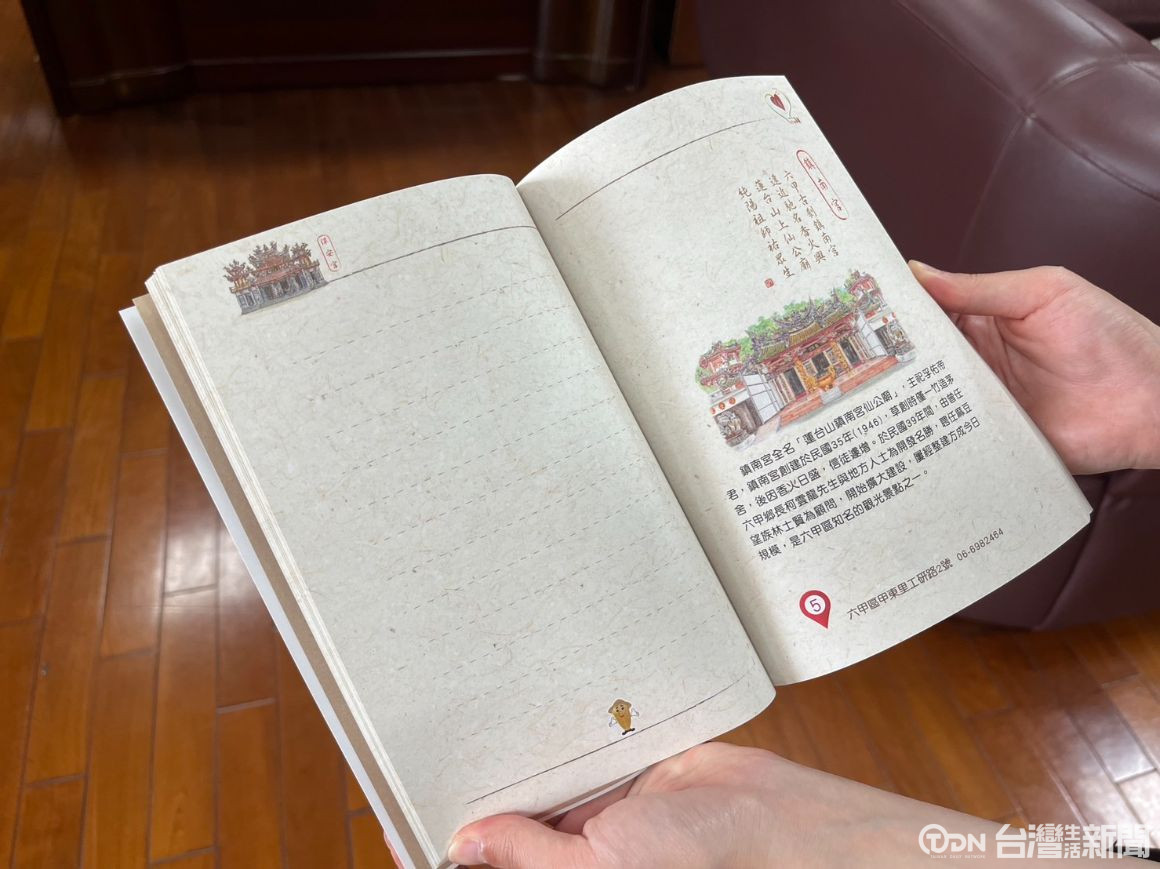 鎮南宮
六甲古剎鎮南宮
遠近馳名香火興
蓮台山上仙公廟
純陽祖師祐眾生
鎮南宮全名「蓮台山鎮南宮仙公廟」，主祀孚佑帝
君，鎮南宮創建於民國35年(1946)，草創時僅一竹造茅
舍，後因香火日盛，信徒遽增。於民國39年間，由曾任
六甲鄉長柯雲龍先生與地方人士為開發名勝，聘任麻豆
望族林士賢為顧問，開始擴大建設，屢經整建方成今日
規模，是六甲區知名的觀光景點之一。
5
六甲區甲東里工研路2號 06-6982464
TDN 台灣生活新聞